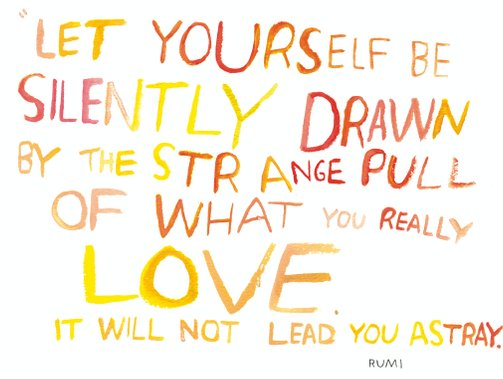 "LET YOURSELF BE
SILENTLY DRAWN
BY THE STRANGE PULL
OF WHAT YOU REALLY
LOVE.
IT WILL NOT LEAD YOU ASTRAY.
RUMI